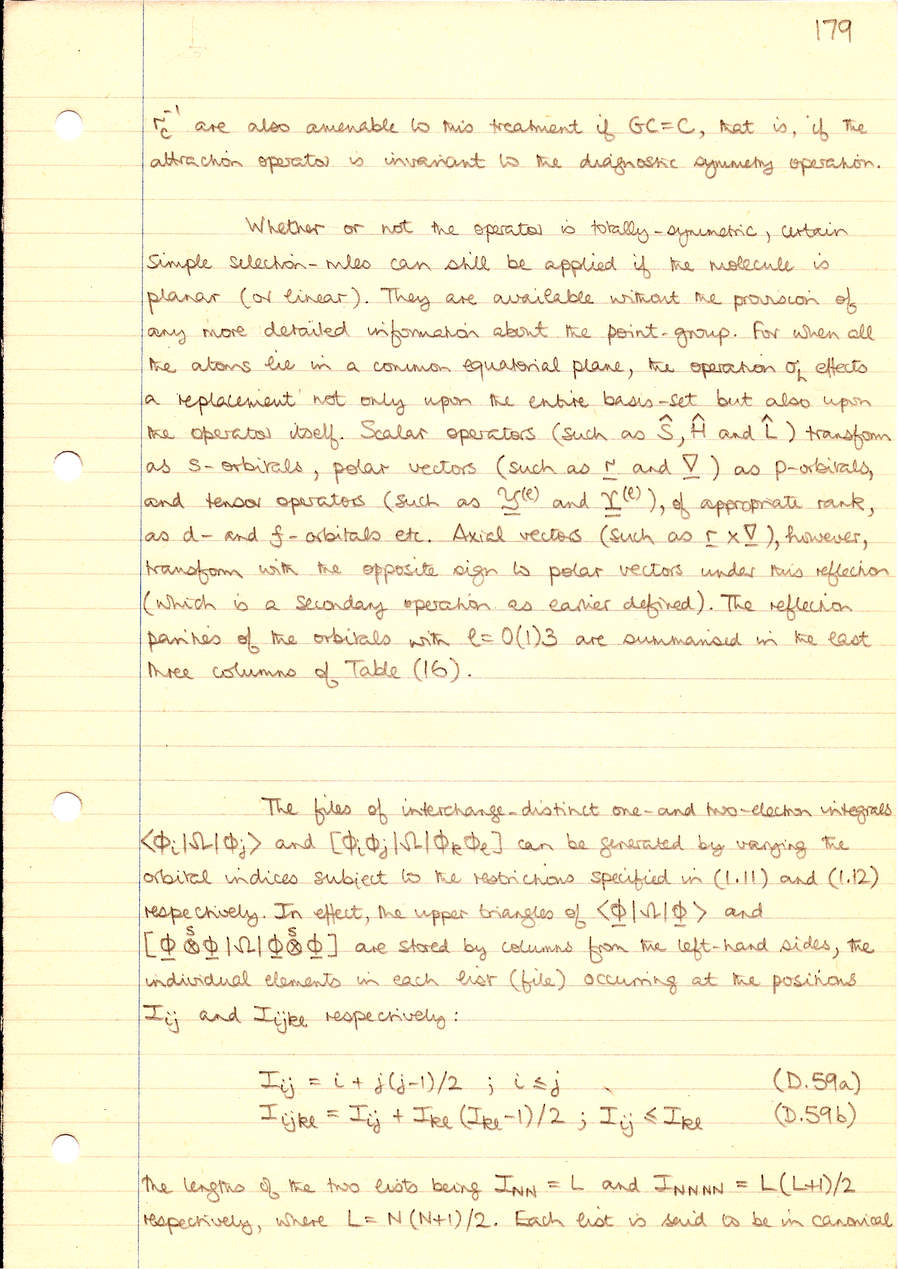 179
r_c^-1 are also amenable to this treatment if GC=C, that is, if the
attraction operator is invariant to the diagnostic symmetry operation.
Whether or not the operator is totally-symmetric, certain
simple selection-rules can still be applied if the molecule is
planar (or linear). They are available without the provision of
any more detailed information about the point-group. For when all
the atoms lie in a common equatorial plane, the operation σ_h effects
a 'replacement' not only upon the entire basis-set but also upon
the operator itself. Scalar operators (such as Ŝ, Ĥ and L̂) transform
as s-orbitals, polar vectors (such as r and ∇) as p-orbitals,
and tensor operators (such as 𝒴^(ℓ) and Υ^(ℓ)), of appropriate rank,
as d- and f-orbitals etc. Axial vectors (such as r x ∇), however,
transform with the opposite sign to polar vectors under this reflection
(which is a secondary operation as earlier defined). The reflection
parities of the orbitals with ℓ=0(1)3 are summarised in the last
three columns of Table (16).
The files of interchange-distinct one- and two-electron integrals
<Φ_i|Ω|Φ_j> and [Φ_iΦ_j|Ω|Φ_kΦ_ℓ] can be generated by varying the
orbital indices subject to the restrictions specified in (1.11) and (1.12)
respectively. In effect, the upper triangles of <Φ|Ω|Φ> and
[Φ ⊗^S Φ|Ω|Φ ⊗^S Φ] are stored by columns from the left-hand sides, the
individual elements in each list (file) occurring at the positions
I_ij and I_ijkℓ respectively:
I_ij = i + j(j-1)/2 ; i ≤ j (D.59a)
I_ijkℓ = I_ij + I_kℓ (I_kℓ-1)/2 ; I_ij ≤ I_kℓ (D.59b)
the lengths of the two lists being I_NN = L and I_NNNN = L(L+1)/2
respectively, where L = N(N+1)/2. Each list is said to be in canonical